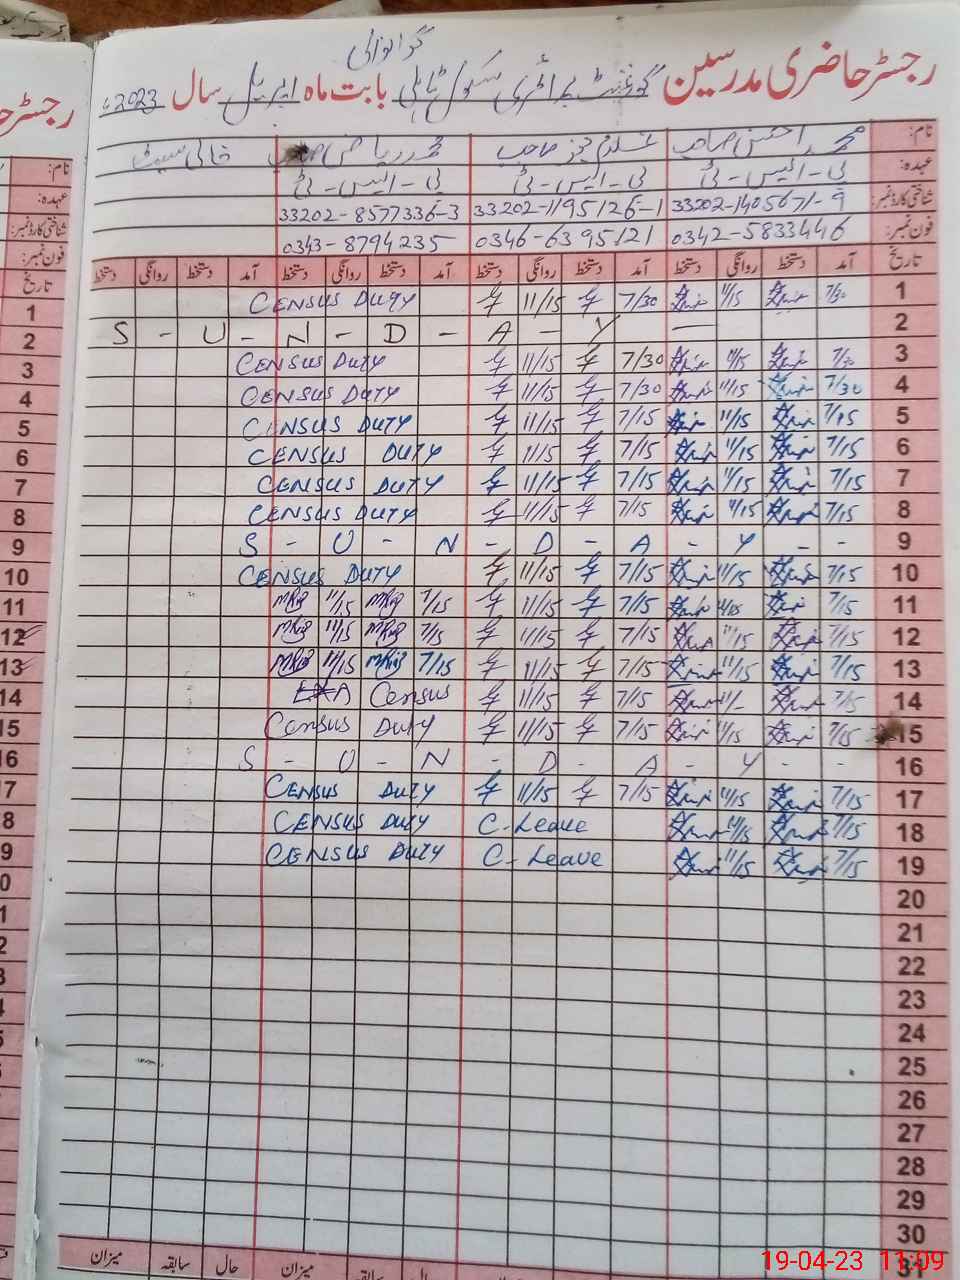 گوانوالی
رجسٹر حاضری مدرسین گورنمنٹ پرائمری سکول بابت ماہ اپریل سال 2023ء
نام: محمد احسن صاحب محمد ریاض صاحب خالی سیٹ
عہدہ: پی-ایس-ٹی پی-ایس-ٹی پی-ایس-ٹی
شناختی کارڈ نمبر: 33202-1405671-9 33202-1195126-1 33202-8577336-3
فون نمبر: 0342-5833446 0346-6395121 0343-8794235
تاریخ آمد دستخط روانگی دستخط آمد دستخط روانگی دستخط آمد دستخط روانگی دستخط آمد دستخط روانگی دستخط تاریخ
1 7/30 11/15 7/30 11/15 CENSUS DUTY 1
2 S - U - N - D - A - Y — 2
3 7/30 11/15 7/30 11/15 CENSUS DUTY 3
4 7/30 11/15 7/30 11/15 CENSUS DUTY 4
5 7/15 11/15 7/15 11/15 CENSUS DUTY 5
6 7/15 11/15 7/15 11/15 CENSUS DUTY 6
7 7/15 11/15 7/15 11/15 CENSUS DUTY 7
8 7/15 11/15 7/15 11/15 CENSUS DUTY 8
9 S - U - N - D - A - Y - - 9
10 7/15 11/15 7/15 11/15 CENSUS DUTY 10
11 7/15 11/15 7/15 11/15 7/15 11/15 11
12 7/15 11/15 7/15 11/15 7/15 11/15 12
13 7/15 11/15 7/15 11/15 7/15 11/15 13
14 7/15 11/- 7/15 11/15 Census 14
15 7/15 11/15 7/15 11/15 Census Duty 15
16 S - U - N - D - A - Y - - 16
17 7/15 11/15 7/15 11/15 CENSUS DUTY 17
18 7/15 11/15 C-Leave CENSUS DUTY 8
19 7/15 11/15 C-Leave CENSUS DUTY 9
20
21
22
23
24
25
26
27
28
29
30
میزان حال سابقہ میزان
19-04-23 11:09